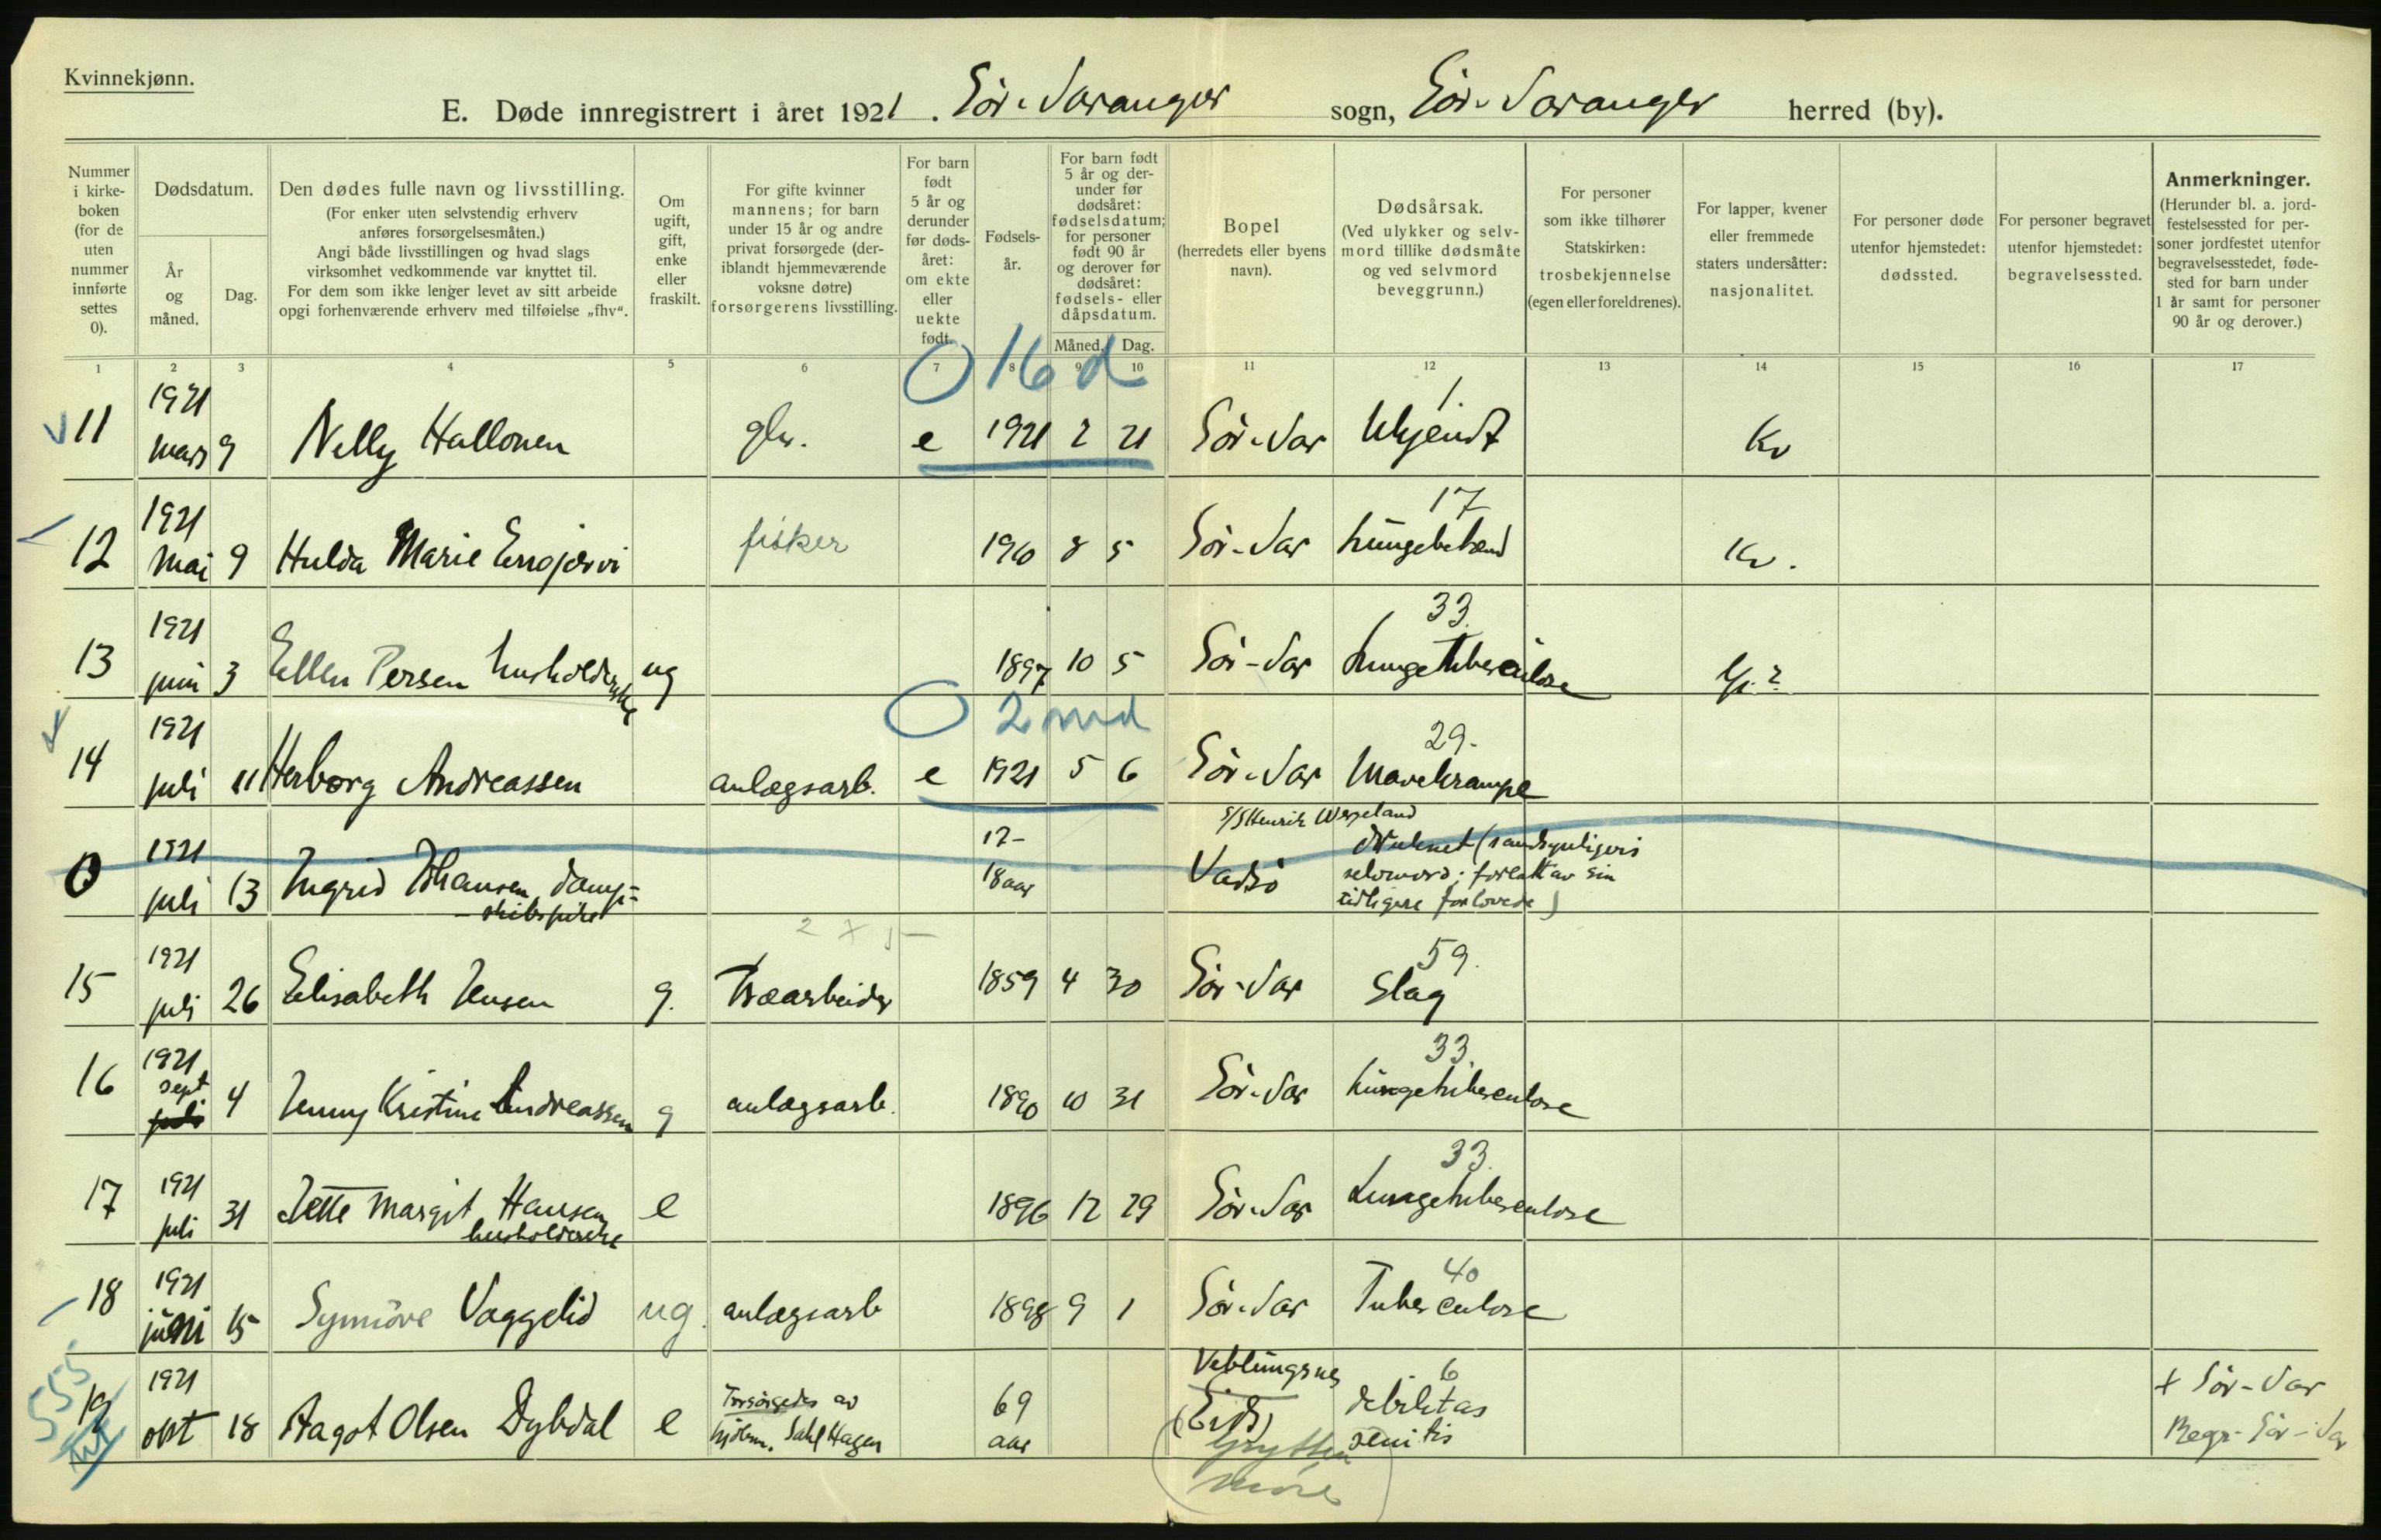 Kvinnekjønn.
E. Døde innregistrert i året 1921. Sör-Varanger sogn, Sör-Varanger herred (by).
Nummer i kirke-boken (for de uten nummer innførte settes 0).
Dødsdatum.
År og måned.
Dag.
Den dødes fulle navn og livsstilling.
(For enker uten selvstendig erhverv anføres forsørgelsesmåten.)
Angi både livsstillingen og hvad slags virksomhet vedkommende var knyttet til.
For dem som ikke lenger levet av sitt arbeide opgi forhenværende erhverv med tilføielse „fhv“.
Om ugift, gift, enke eller fraskilt.
For gifte kvinner mannens; for barn under 15 år og andre privat forsørgede (deriblandt hjemmeværende voksne døtre) forsørgerens livsstilling.
For barn født 5 år og derunder før døds-året: om ekte eller uekte født.
Fødsels-år.
For barn født 5 år og der-under før dødsåret: fødselsdatum; for personer født 90 år og derover før dødsåret: fødsels- eller dåpsdatum.
Måned. Dag.
Bopel
(herredets eller byens navn).
Dødsårsak.
(Ved ulykker og selv-mord tillike dødsmåte og ved selvmord beveggrunn.)
For personer som ikke tilhører Statskirken: trosbekjennelse (egen eller foreldrenes).
For lapper, kvener eller fremmede staters undersåtter: nasjonalitet.
For personer døde utenfor hjemstedet: dødssted.
For personer begravet utenfor hjemstedet: begravelsessted.
Anmerkninger.
(Herunder bl. a. jord-festelsessted for per-soner jordfestet utenfor begravelsesstedet, føde-sted for barn under 1 år samt for personer 90 år og derover.)
1 2 3 4 5 6 7 8 9 10 11 12 13 14 15 16 17
0 16 d
11 1921 mars 9 Nelly Hallonen e 1921 2 21 Sör-Var 1. Ukjendt Kv
12 1921 mai 9 Hulda Marie fisker 1910 8 5 Sör-Var 17 Kv.
13 1921 juni 3 Ellen Persen husholderske ug 1897 10 5 Sör-Var 33. Lungetuberculose
0 2 md
14 1921 juli 11 Herborg Andreassen anlægsarb. e 1921 5 6 Sör-Var 29. Mavekrampe
0 1921 juli 13 Ingrid Johansen, damp-skibspike 17-18 aar S/S Henrik Wergeland Vadsö druknet (sandsynligvis selvmord; forlatt av sin tidligere forlovede)
2 7 5
15 1921 juli 26 Elisabeth Jensen g. Træarbeider 1859 4 30 Sör-Var 59. Slag
16 1921 sept juli 4 Jenny Kristine Andreassen g anlægsarb. 1890 10 31 Sör-Var 33. Lungetuberculose
17 1921 juli 31 Jette Margit Hansen husholderske e 1896 12 29 Sör-Var 33. Lungetuberculose
18 1921 juni 15 Synnöve Vaggelid ug. anlægsarb 1898 9 1 Sör-Var 40 Tuberculose
555
19 1921 okt 18 Aagot Olsen Dybdal e Forsörgedes av Dahl Hagen 69 aar Veblungsnes (Eid) 6 debilitas senilis + Sör-Var Begr. Sör-Var
(Grytten Möre)